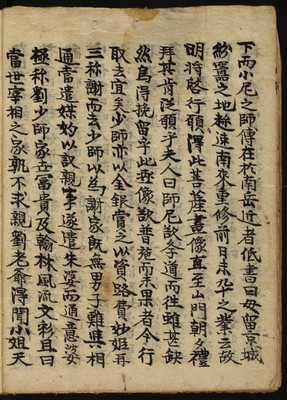 下而小尼之師傅在於南岳近者低書曰毋留京城
紛囂之地趂速南來重修前日未卒之業云故
明將啓行願得此菩薩畫像直至山門朝夕禮
拜其肯泛願乎夫人曰師尼欲冬道而徃雖甚缺
然烏得挽留乎此莊像故普施而未果者今行
取去宜矣少師亦以金銀賞之以資路費妙姬再
三称謝而去少師以爲謝家既無男子難與相
通當遣媒妁以議親事遂遣朱婆而通意婆
極称劉少師家立富貴及翰林風流文彩且曰
當世宰相之家孰不求親劉老爺得聞小姐天